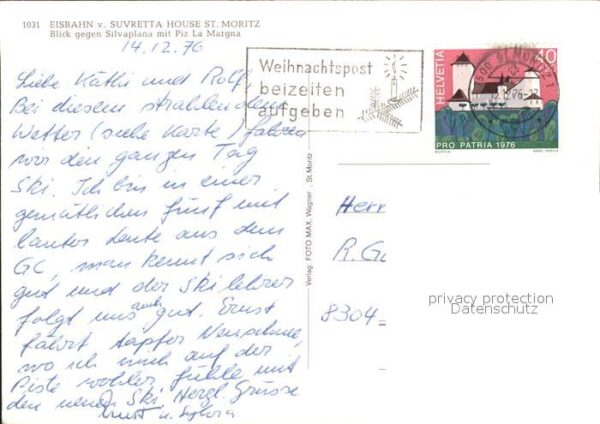 1031 EISBAHN v. SUVRETTA HOUSE ST. MORITZ
Blick gegen Silvaplana mit Piz La Margna
14.12.76
Liebe Käthi und Rolf,
Bei diesem strahlenden
Wetter (siehe Karte) fahren
wir den ganzen Tag
Ski. Ich bin in einer
gemütlichen fünf mit
lauter Leute aus dem
GC, man kennt sich
gut und der Skilehrer
folgt uns auch gut. Ernst
fährt tapfer Neuschnee,
wo ich mich auf der
Piste wohler fühle mit
den neuen Ski. Herzl. Grüsse
Ernst u. Sylvia
Weihnachtspost
beizeiten
aufgeben
7500 ST. MORITZ 1
HELVETIA
40
PRO PATRIA 1976
Verlag: FOTO MAX. Wagner, St. Moritz
Herr
R. G
8304
privacy protection
Datenschutz